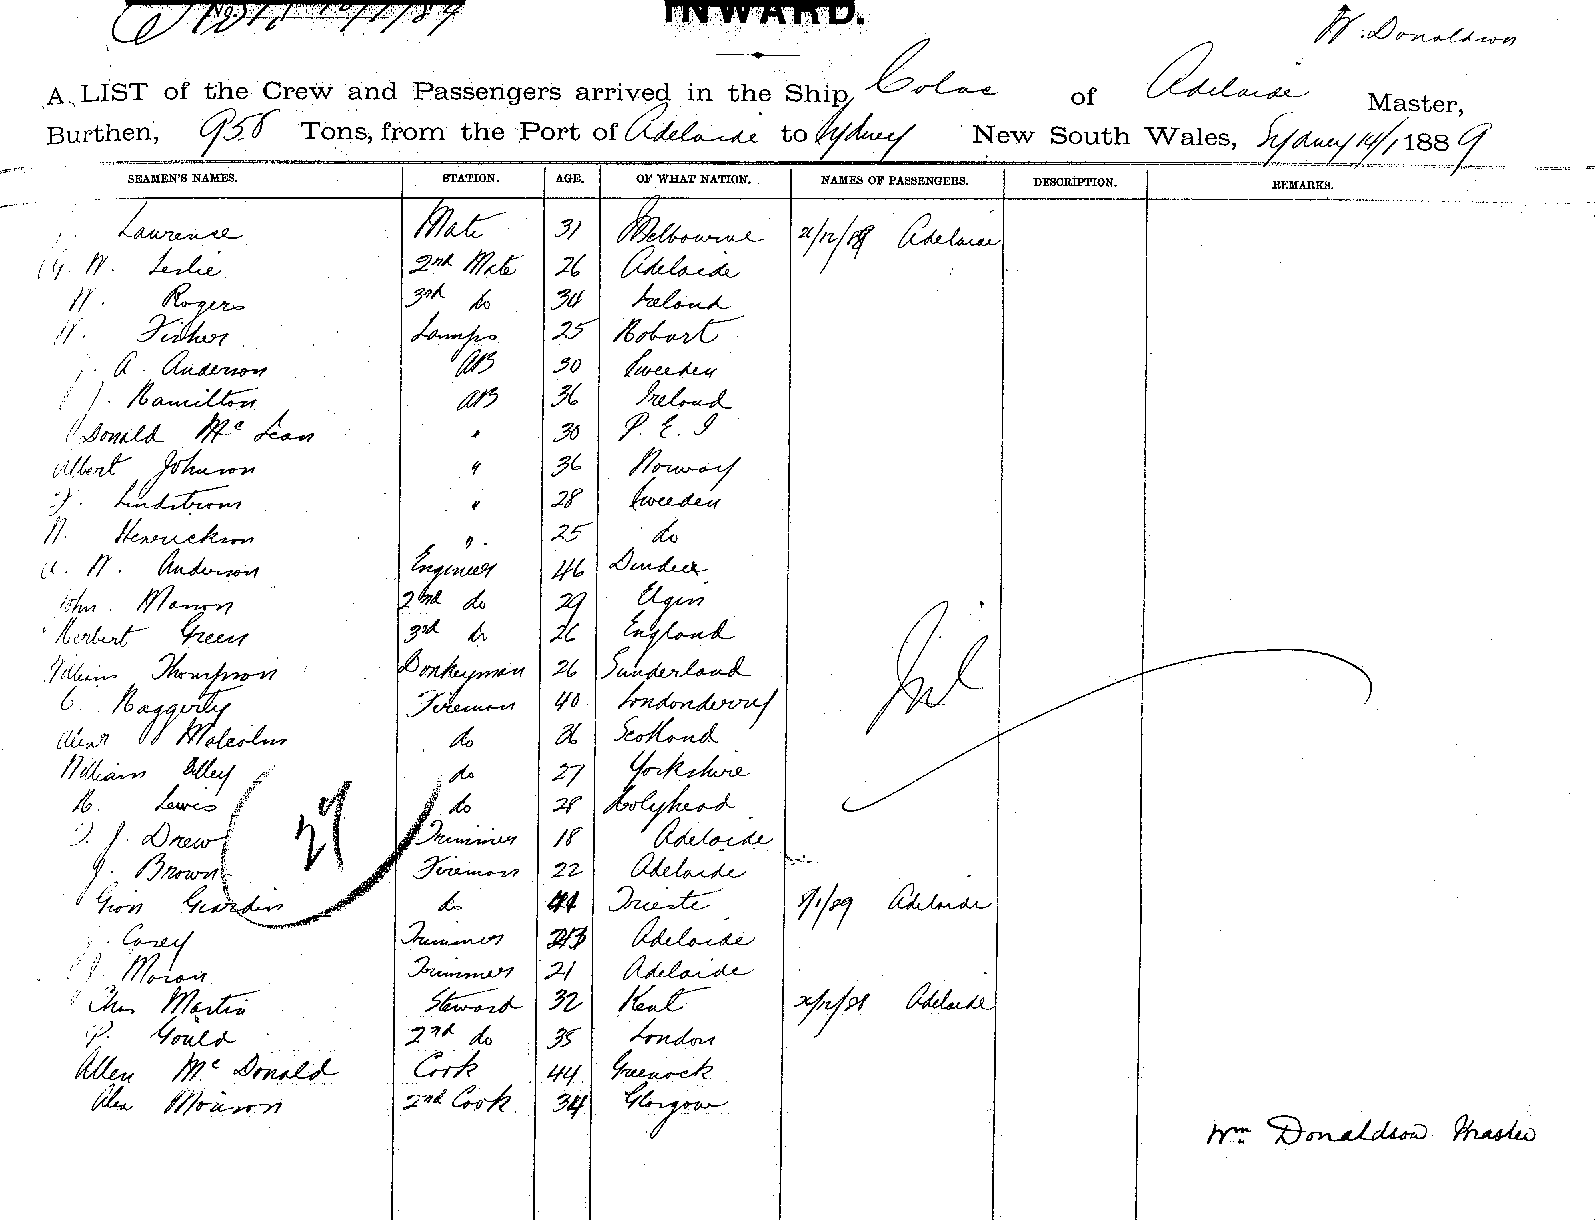 INWARD.
W. Donaldson
A LIST of the Crew and Passengers arrived in the Ship Colac of Adelaide Master,
Burthen, 958 Tons, from the Port of Adelaide to Sydney New South Wales, Sydney 14/1 1889
SEAMEN'S NAMES. STATION. AGE. OF WHAT NATION. NAMES OF PASSENGERS. DESCRIPTION. REMARKS.
Lawrence Mate 31 Melbourne Adelaide
W. Leslie 2nd Mate 26 Adelaide
W. Rogers 3rd do Ireland
W. Fisher Lamps 25 Hobart
A. Anderson AB 30 Sweeden
J. Hamilton AB 36 Ireland
Donald Mc Lean " 30 P. E. I
Albert Johnson " 36 Norway
Lindstrom " 28 Sweeden
Henrickson " 25 do
W. Anderson Engineer 46 Dundee
John Manson 2nd do 29 Elgin
Herbert Green 3rd do 26 England
William Thompson Donkeyman 26 Sunderland
C. Haggerty Fireman 40 Londonderry
Malcolm do 26 Scotland
William Alley do 27 Yorkshire
H. Lewis do 28 Holyhead
J. Drew Trimmer 18 Adelaide
J. Brown Fireman 22 Adelaide
do 44 Trieste 8/1/89 Adelaide
J. Casey Trimmer Adelaide
J. Moran Trimmer 21 Adelaide
Thos Martin Steward 32 Kent Adelaide
P. Gould 2nd do 35 London
Allen Mc Donald Cook 44 Greenock
Alex 2nd Cook 34 Glasgow
Nil
27
Wm Donaldson Master